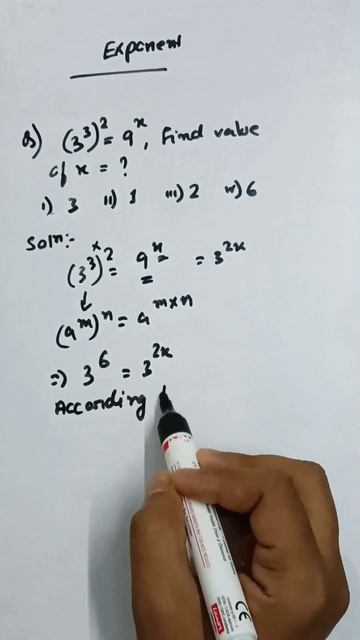 Exponent
Q) (3³)² = 9ˣ, Find value
of x = ?
i) 3 ii) 1 iii) 2 iv) 6
Soln:-
(3³)ˣ² = 9ˣ = 3²ˣ
(aᵐ)ⁿ = aᵐˣⁿ
=> 3⁶ = 3²ˣ
According
CE